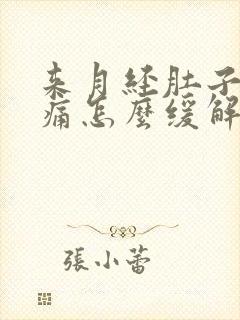 来月经肚子
痛怎麽缓解
張小蕾